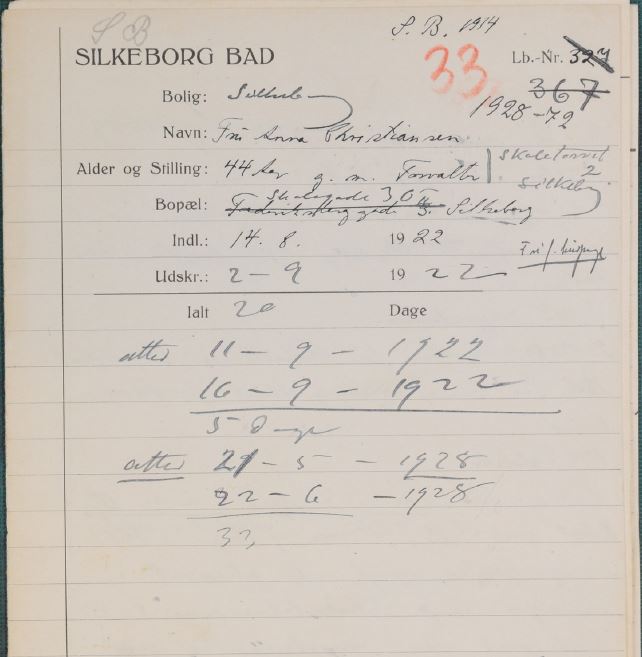 S B
S. B. 1914
SILKEBORG BAD
33
Lb.-Nr. 327
367
1928-72
Bolig: Silkeborg
Navn: Fru Anna Christiansen
Alder og Stilling: 44 Aar g. m. Forvalter
Skoletorvet
2
Silkeborg
Skolegade 30
Bopæl: Frederiksberggade 5. Silkeborg
Indl.: 14. 8. 1922
Udskr.: 2 - 9 1922
Ialt 20 Dage
atter 11 - 9 - 1922
16 - 9 - 1922
5 Dage
atter 21 - 5 - 1928
22 - 6 - 1928
33